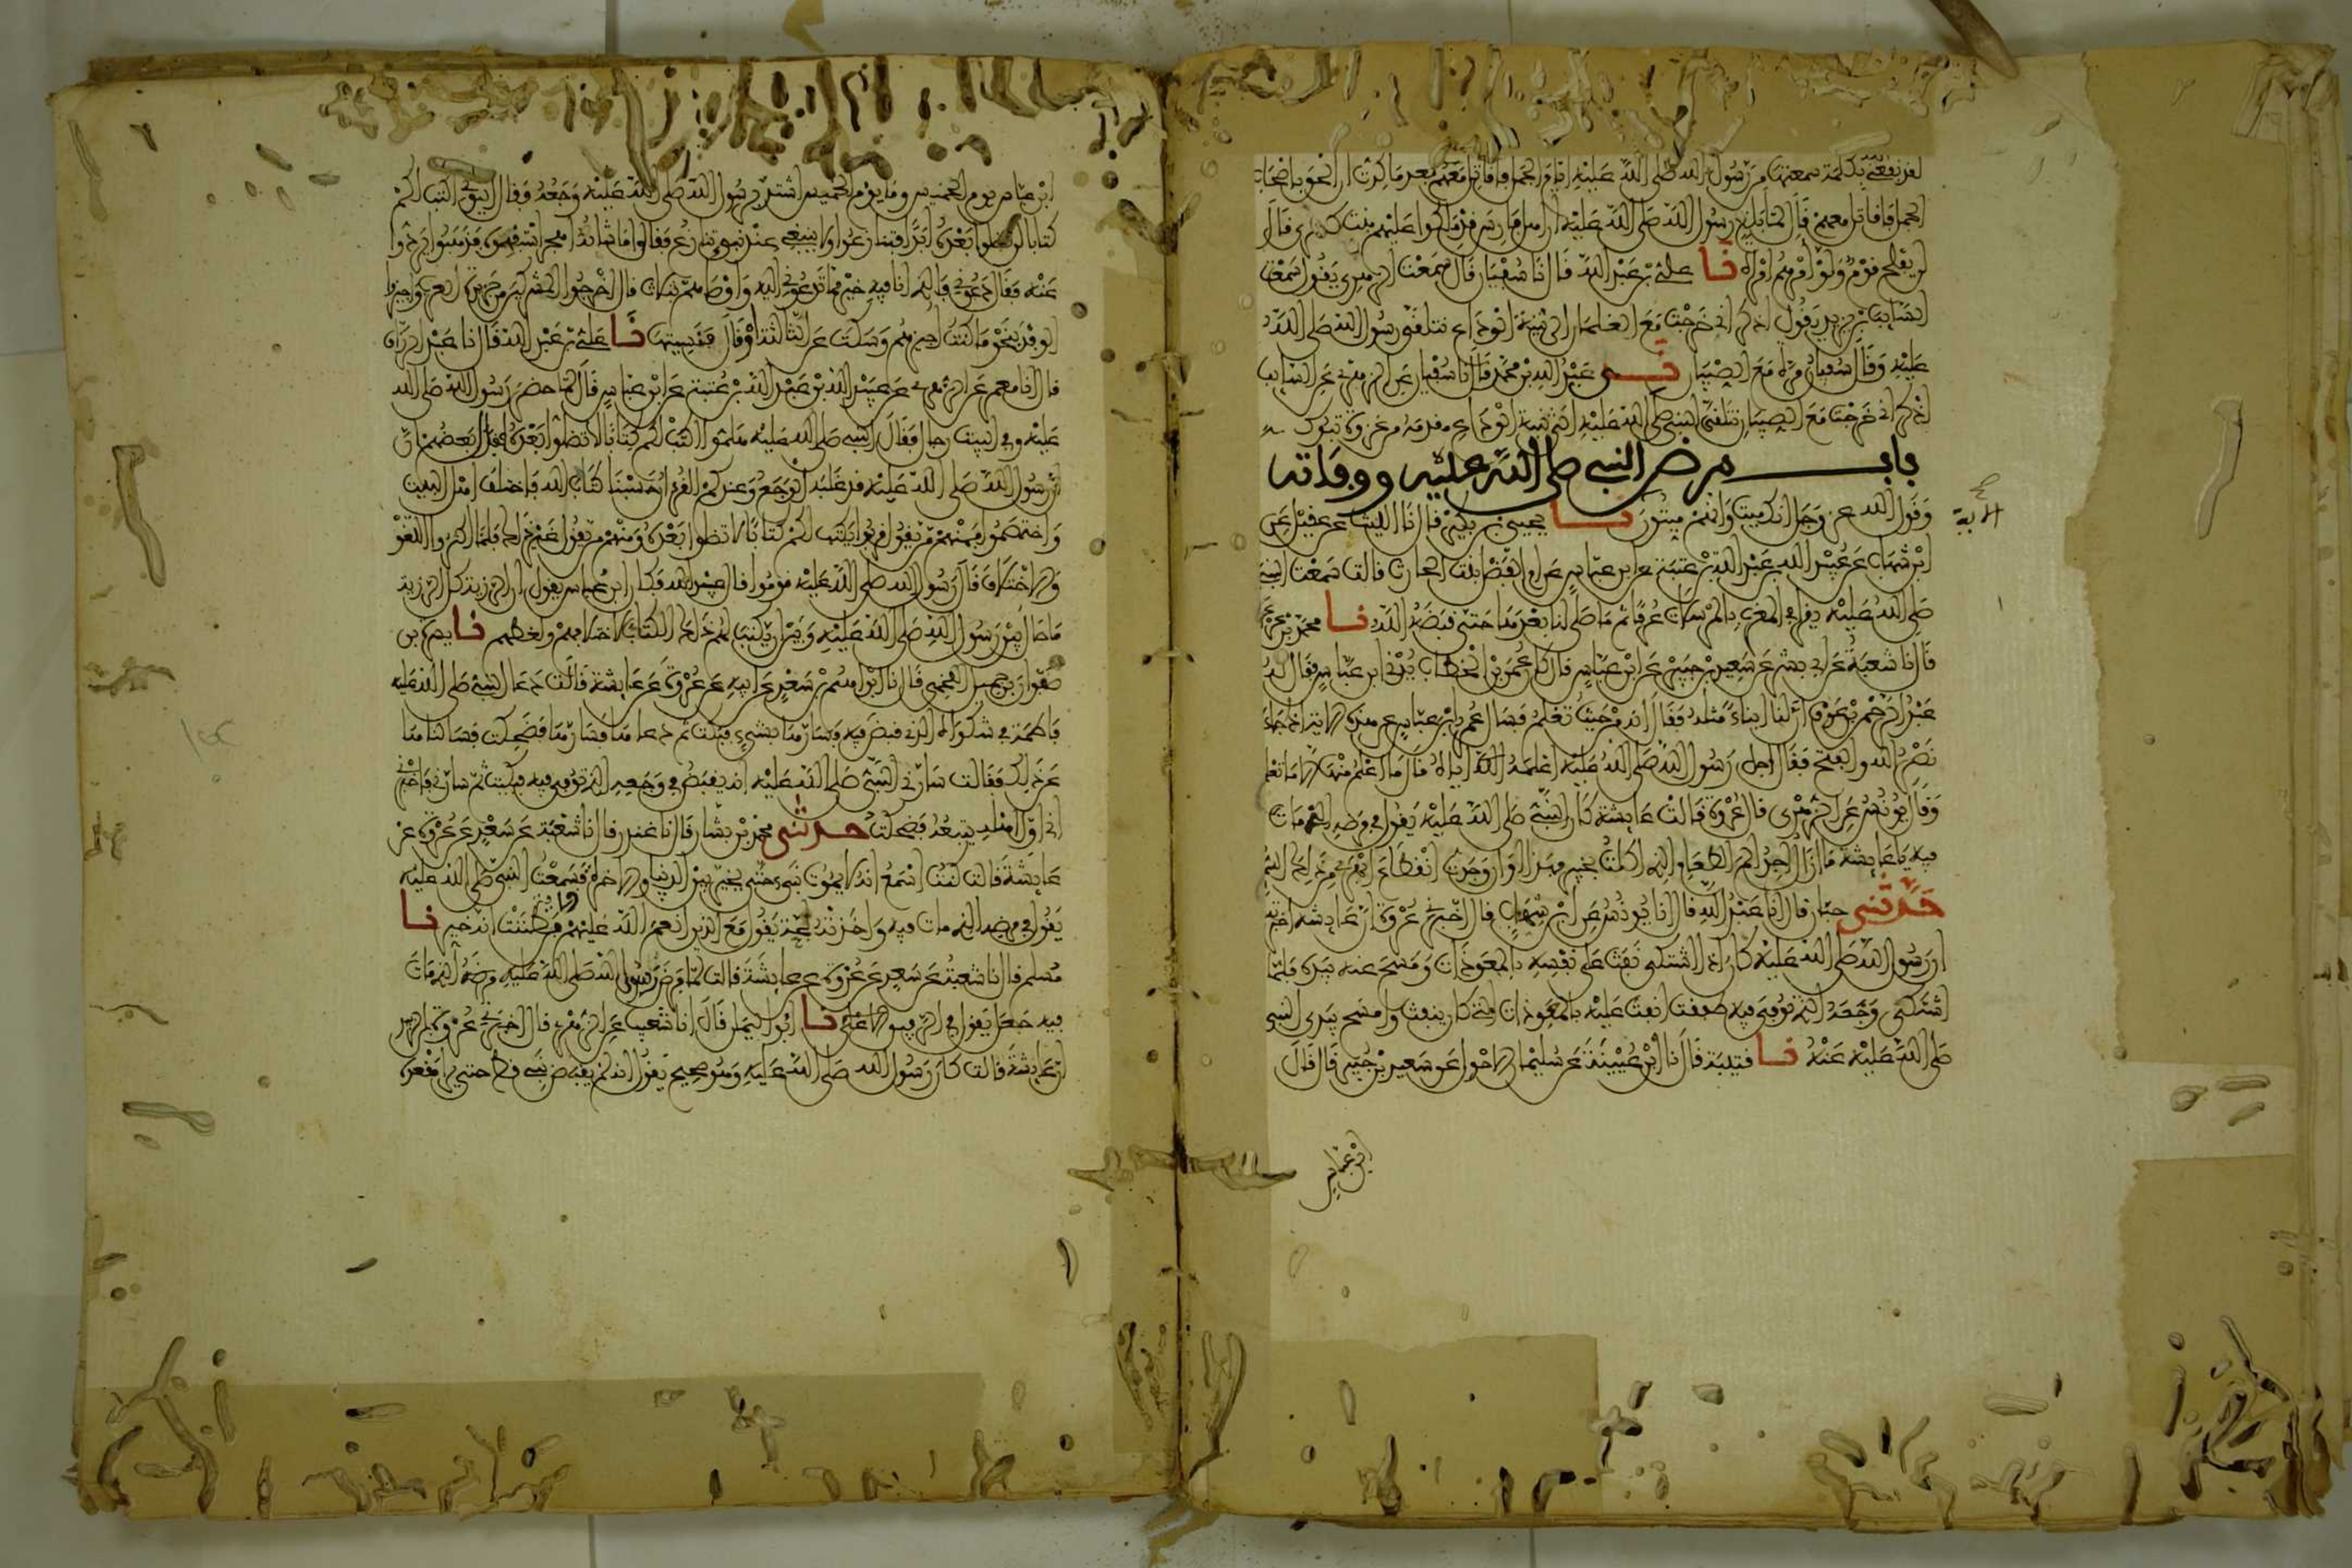 لقد نفعني بكلمة سمعتها من رسول الله صلى الله عليه ايام الجمل فاقاتل معهم بعد ما كدت ان الحق باصحاب
الجمل فاقاتل معهم قال لما بلغ رسول الله صلى الله عليه ان اهل فارس قد ملكوا عليهم بنت كسرى قال
لن يفلح قوم ولوا امرهم امراة نا علي بن عبد الله قال نا سفيان قال سمعت الزهري يقول سمعت
السايب بن يزيد يقول اذكر اني خرجت مع الغلمان الى ثنية الوداع نتلقى رسول الله صلى الله
عليه وقال سفيان مرة مع الصبيان نـي عبد الله بن محمد قال نا سفيان عن الزهري عن السايب
اذكر اني خرجت مع الصبيان نتلقى النبي صلى الله عليه الى ثنية الوداع مقدمه من غزوة تبوك
باب مرض النبي صلى الله عليه ووفاته
وقول الله عز وجل انك ميت وانهم ميتون نا يحيى بن بكير قال نا الليث عن عقيل عن
الاية
ابن شهاب عن عبيد الله بن عبد الله بن عتبة عن ابن عباس عن ام الفضل بنت الحارث قالت سمعت النبي
صلى الله عليه يقرا في المغرب بالمرسلات عرفا ثم ما صلى لنا بعدها حتى قبضه الله نا محمد بن عرعرة
قال نا شعبة عن ابي بشر عن سعيد بن جبير عن ابن عباس قال كان عمر بن الخطاب يدني ابن عباس فقال له
عبد الرحمن بن عوف ان لنا ابناء مثله فقال انه من حيث تعلم فسال عمر ابن عباس عن هذه الاية اذا جاء
نصر الله والفتح فقال اجل رسول الله صلى الله عليه اعلمه الله اياه قال ما اعلم منها الا ما تعلم
وقال يونس عن الزهري قال عروة قالت عايشة كان النبي صلى الله عليه يقول في مرضه الذي مات
فيه يا عايشة ما ازال اجد الم الطعام الذي اكلت بخيبر فهذا اوان وجدت انقطاع ابهري من ذلك السم
حدثني حبان قال انا عبد الله قال انا يونس عن ابن شهاب قال اخبرني عروة ان عايشة اخبرته
ان رسول الله صلى الله عليه كان اذا اشتكى نفث على نفسه بالمعوذات ومسح عنه بيده فلما
اشتكى وجعه الذي توفي فيه طفقت انفث عليه بالمعوذات التي كان ينفث وامسح بيد النبي
صلى الله عليه عنه نا قتيبة قال نا ابن عيينة عن سليمان الاحول عن سعيد بن جبير قال قال
ابن عباس
ابن عباس يوم الخميس وما يوم الخميس اشتد برسول الله صلى الله عليه وجعه وقال ايتوني اكتب لكم
كتابا لن تضلوا بعده ابدا فتنازعوا ولا ينبغي عند نبي تنازع فقالوا ما شانه اهجر استفهموه فذهبوا يردون
عنه فقال دعوني فالذي انا فيه خير مما تدعوني اليه واوصاهم بثلاث قال اخرجوا المشركين من جزيرة العرب واجيزوا
الوفد بنحو ما كنت اجيزهم وسكت عن الثالثة او قال فنسيتها نا علي بن عبد الله قال نا عبد الرزاق
قال انا معمر عن الزهري عن عبيد الله بن عبد الله بن عتبة عن ابن عباس قال لما حضر رسول الله صلى الله
عليه وفي البيت رجال فقال النبي صلى الله عليه هلموا اكتب لكم كتابا لا تضلوا بعده فقال بعضهم ان
رسول الله صلى الله عليه قد غلبه الوجع وعندكم القران حسبنا كتاب الله فاختلف اهل البيت
واختصموا فمنهم من يقول قربوا يكتب لكم كتابا لا تضلوا بعده ومنهم من يقول غير ذلك فلما اكثروا اللغو
والاختلاف قال رسول الله صلى الله عليه قوموا قال عبيد الله فكان ابن عباس يقول ان الرزية كل الرزية
ما حال بين رسول الله صلى الله عليه وبين ان يكتب لهم ذلك الكتاب لاختلافهم ولغطهم نا يسرة بن
صفوان بن جميل اللخمي قال نا ابراهيم بن سعد عن ابيه عن عروة عن عايشة قالت دعا النبي صلى الله عليه
فاطمة في شكواه الذي قبض فيه فسارها بشيء فبكت ثم دعاها فسارها فضحكت فسالناها
عن ذلك فقالت سارني النبي صلى الله عليه انه يقبض في وجعه الذي توفي فيه فبكيت ثم سارني فاخبرني
اني اول اهله يتبعه فضحكت حدثني محمد بن بشار قال نا غندر قال نا شعبة عن سعد عن عروة عن
عايشة قالت كنت اسمع انه لا يموت نبي حتى يخير بين الدنيا والاخرة فسمعت النبي صلى الله عليه
يقول في مرضه الذي مات فيه واخذته بحة يقول مع الذين انعم الله عليهم فظننت انه خير نا
مسلم قال نا شعبة عن سعد عن عروة عن عايشة قالت لما مرض رسول الله صلى الله عليه مرضه الذي مات
فيه جعل يقول في الرفيق الاعلى نا ابو اليمان قال انا شعيب عن الزهري قال اخبرني عروة بن الزبير
ان عايشة قالت كان رسول الله صلى الله عليه وهو صحيح يقول انه لم يقبض نبي قط حتى يرى مقعده